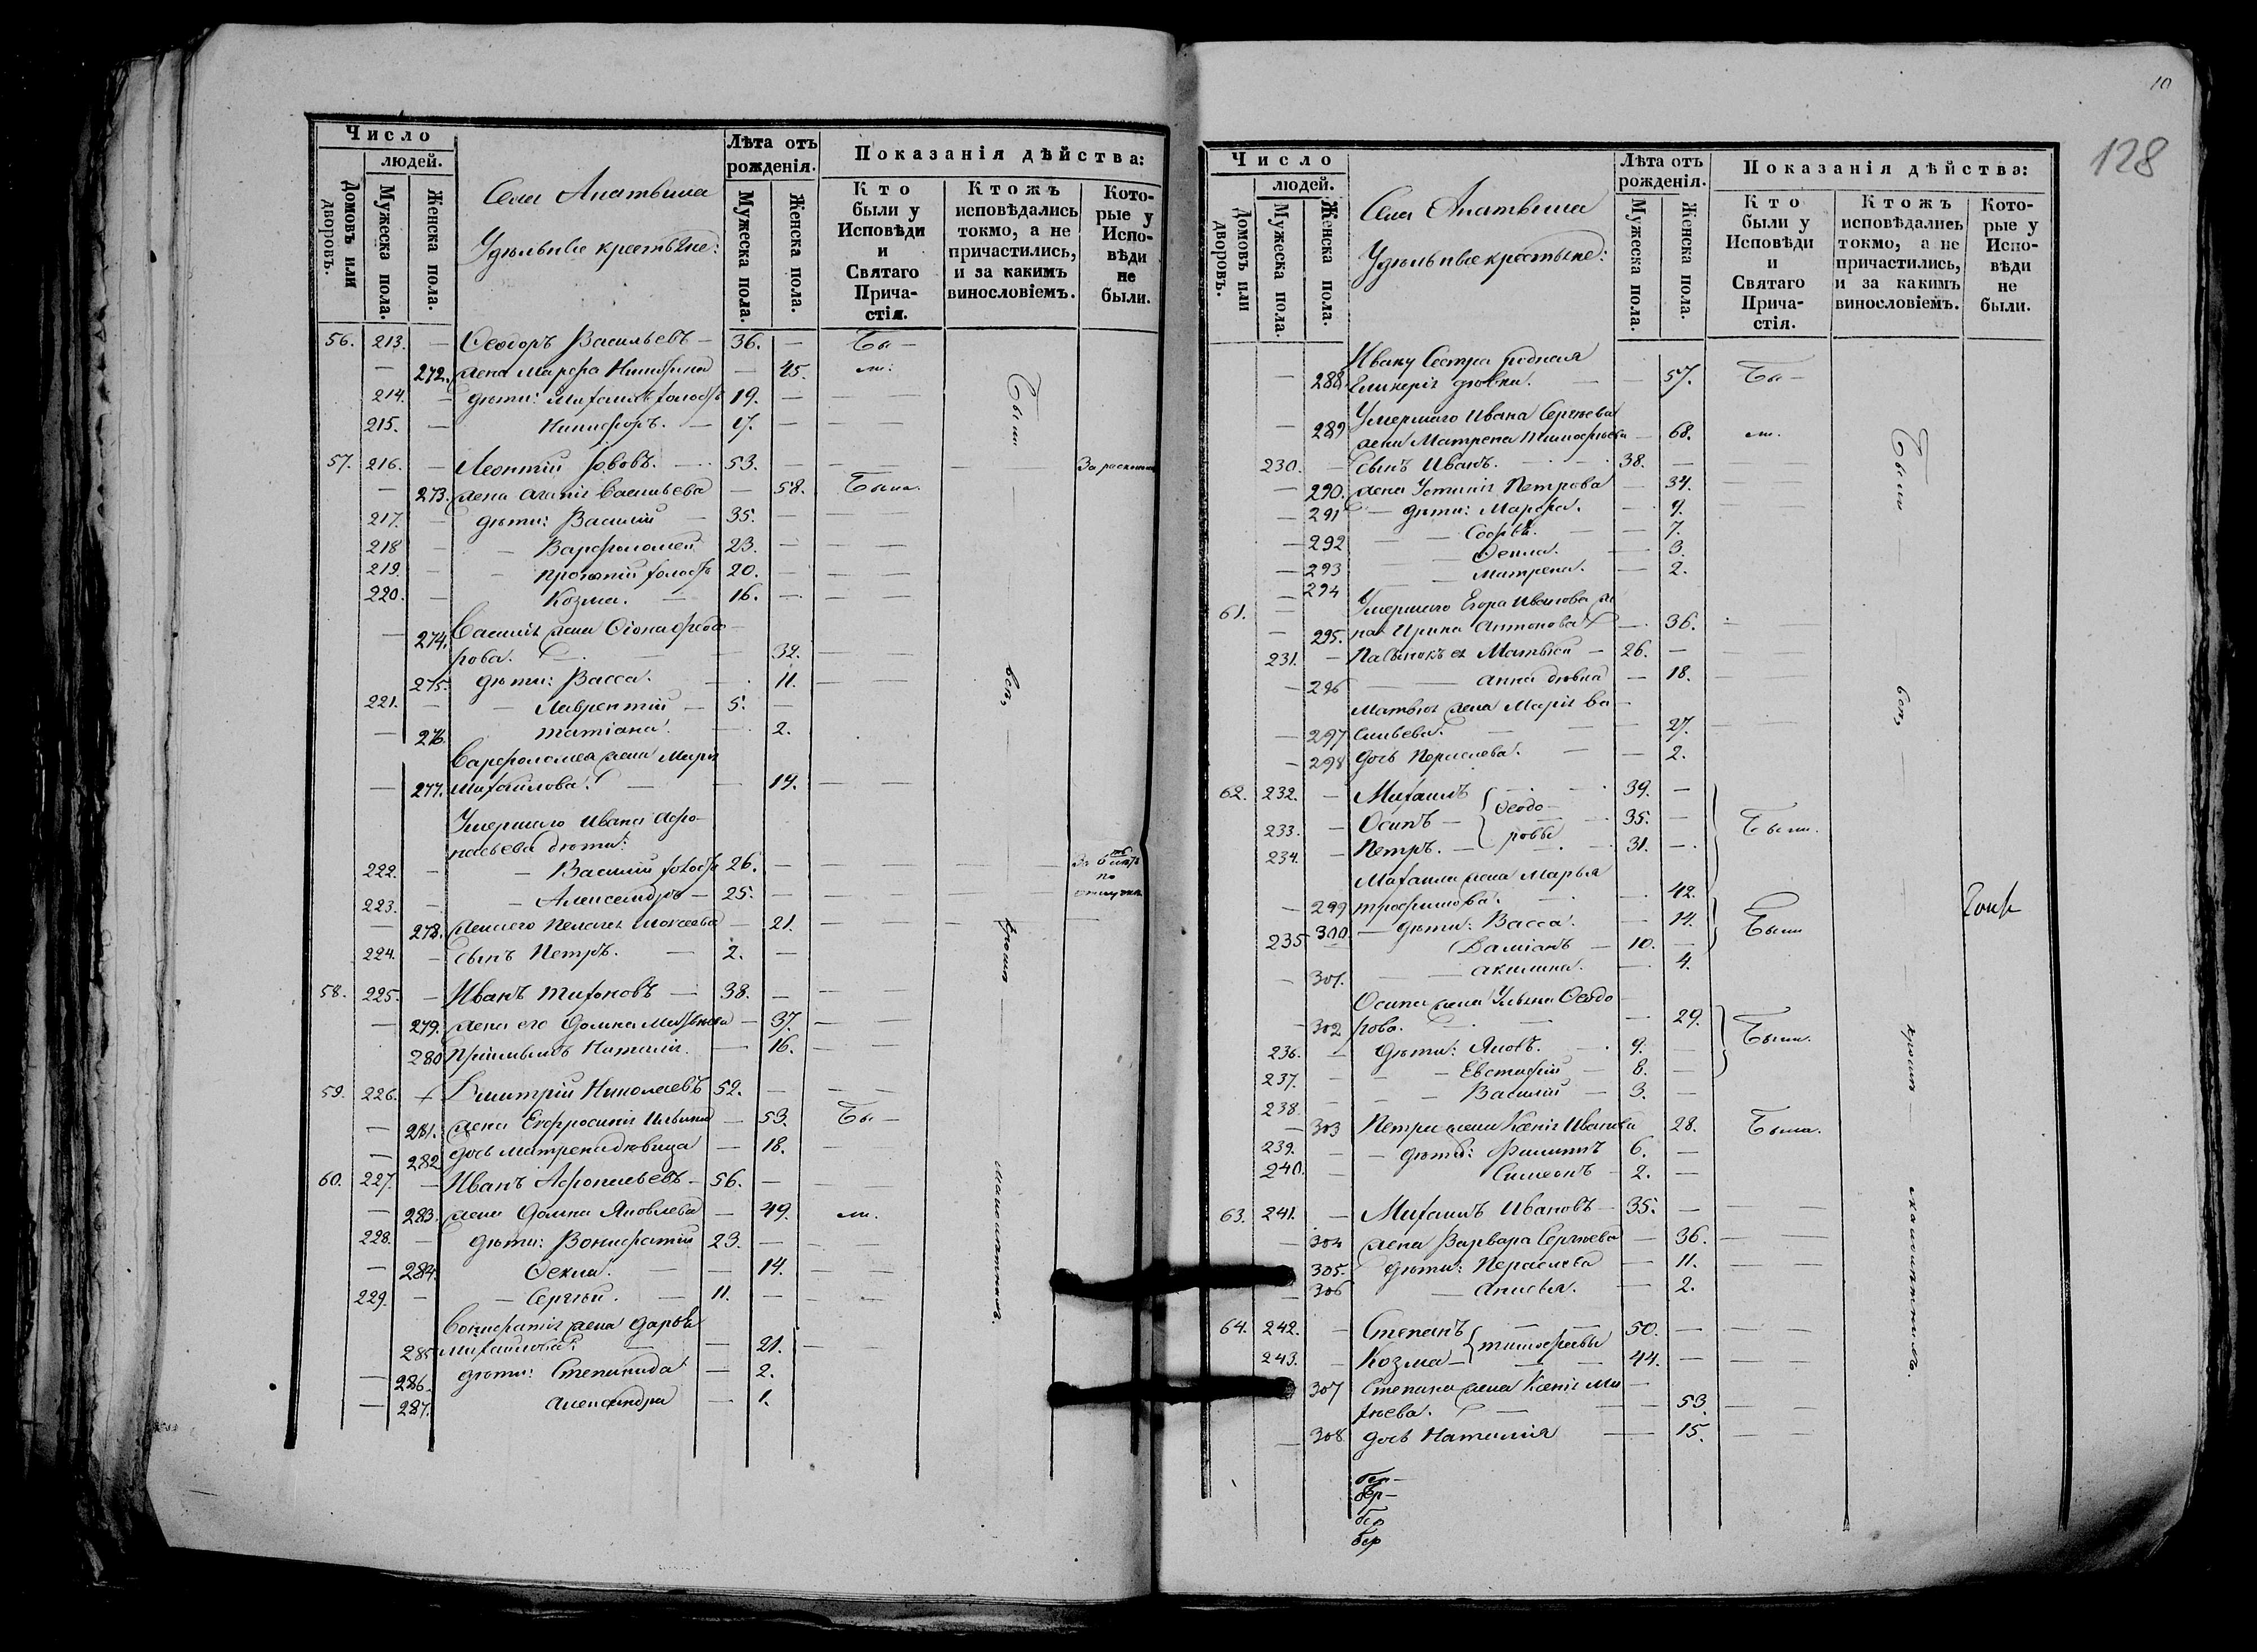 Число
людей.
Домовъ или дворовъ.
Мужеска пола.
Женска пола.
Села
Удѣльные крестьяне:
Лѣта отъ рожденія.
Мужеска пола.
Женска пола.
Показанія дѣйства:
Кто были у Исповѣди и Святаго Прича-стія.
Ктожъ исповѣдались токмо, а не причастились, и за какимъ винословіемъ.
Кото-рые у Испо-вѣди не были.
56. 213. — Ѳеодоръ Васильевъ — 36. — Бы —
— 272. жена Марфа — 45. ли:
214. — дѣти: Михаилъ холостъ 19. —
215. — Никифоръ. — 17. —
57. 216. — Леонтій — 53. —
— 273. жена Васильева — 58. Была.
217. — дѣти: Василій — 35. —
218 — Варфоломей 23. —
219. — холостъ 20. —
220. — Козма. — 16. —
— 274. Василія жена
рова. — 32.
275. дѣти: Васса. — 11.
221. — Лаврентій — 5. —
— 276. Татіана. — 2.
Варфоломея жена
— 277. Михайлова. — 19.
Умершаго Ивана Афо-
насьева дѣти:
222. — Василій холостъ 26. —
223. — Александръ — 25. —
— 278. — 21.
224. — сынъ Петръ. — 2. —
58. 225. — Иванъ Тихоновъ — 38. —
— 279. жена его Домна — 37.
280 Наталія. — 16.
59. 226. Димитрій Николаевъ 52. —
— 281. жена Евфросинія Ильина — 53. Бы —
— 282 дочь Матрена дѣвица — 18.
60. 227. — Иванъ Афонасьевъ — 56. —
— 283. жена Домна Яковлева — 49. ли.
228. — дѣти: Вонифатій 23. —
— 284. Ѳекла. — 14.
229. — Сергѣй. — 11. —
Вонифатія жена Дарья
285 Михайлова. — 21.
— 286. дѣти: Степанида — 2.
— 287. Александра — 1.
Были
всѣ,
кромѣ
малолѣтнихъ.
10
128
Число
людей.
Домовъ или дворовъ.
Мужеска пола.
Женска пола.
Села
Удѣльные крестьяне:
Лѣта отъ рожденія.
Мужеска пола.
Женска пола.
Показанія дѣйства:
Кто были у Исповѣди и Святаго Прича-стія.
Ктожъ исповѣдались токмо, а не причастились, и за какимъ винословіемъ.
Кото-рые у Испо-вѣди не были.
Ивану Сестра родная
— 288 Гликерія дѣвка. — 57. Бы —
Умершаго Ивана Сергѣева
— 289 жена Матрена Тимофѣева — 68. ли.
230. — Сынъ Иванъ. — 38. —
— 290. жена Устинія Петрова — 34.
— 291 — дѣти: Марфа. — 9.
— 292 — Софья. — 7.
— 293 Ѳекла. — 3.
— 294 Матрена. — 2.
61. Умершаго Егора Иванова же
— 295. на Ирина Антонова — 36.
231. — Матвей — 26. —
— 296 Анна дѣвка — 18.
Матвея жена Марія Ва
— 297 сильева. — 27.
— 298 дочь Параскева. — 2.
62. 232. — Михаилъ 39. —
233. — Осипъ — Ѳеодо- 35. — Были.
234. — Петръ. — ровы 31. —
Михаила жена Марья
— 299 Трофимова. — 42.
300. — дѣти: Васса. — 14. Были
235 Даміанъ — 10. —
— 301. Акилина. — 4.
Осипа жена Ульяна Ѳеодо
— 302 рова. — 29. Были.
236. — дѣти: Яковъ. — 9. —
237. — Евстафій — 8. —
238. — Василій — 3. —
— 303 Петра жена Ксенія Иванова 28. Была.
239. — дѣти: Филиппъ 6. —
240. — Симеонъ — 2. —
63. 241. — Михаилъ Ивановъ — 35. —
— 304 жена Варвара Сергѣева — 36.
305. дѣти: Параскева — 11.
— 306 — 2.
64. 242. — Степанъ 50. —
243. — Козма — Тимофѣевы 44. —
307 Степана жена Ксенія Ми
хѣева. — 53.
— 308 дочь Наталія — 15.
Были
всѣ,
кромѣ
малолѣтнихъ.